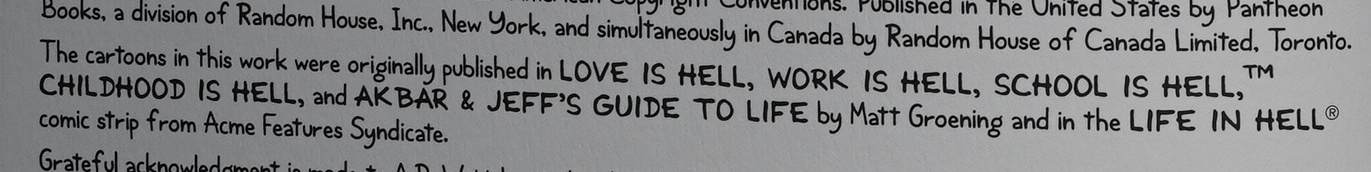 Copyright Conventions. Published in The United States by Pantheon
Books, a division of Random House, Inc., New York, and simultaneously in Canada by Random House of Canada Limited, Toronto.
The cartoons in this work were originally published in LOVE IS HELL, WORK IS HELL, SCHOOL IS HELL,™
CHILDHOOD IS HELL, and AKBAR & JEFF'S GUIDE TO LIFE by Matt Groening and in the LIFE IN HELL®
comic strip from Acme Features Syndicate.
Grateful acknowledgment is made